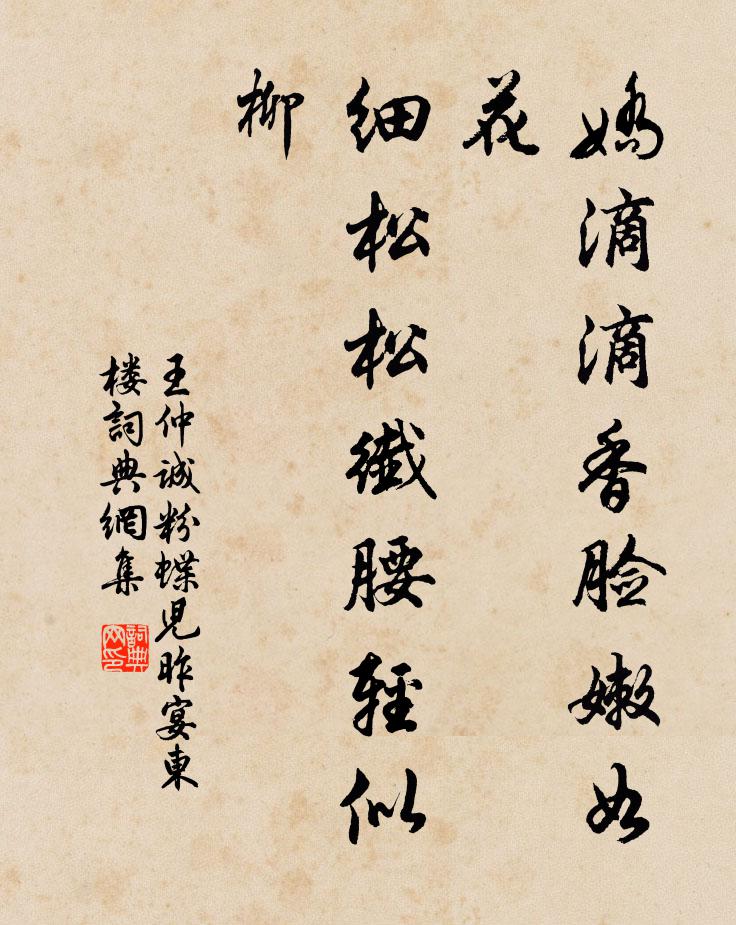 嬌滴滴香脸嫩如
花
细松松纖腰輕似
柳
王仲诚粉蝶児昨宴東
楼詞典網集
詞典
网印